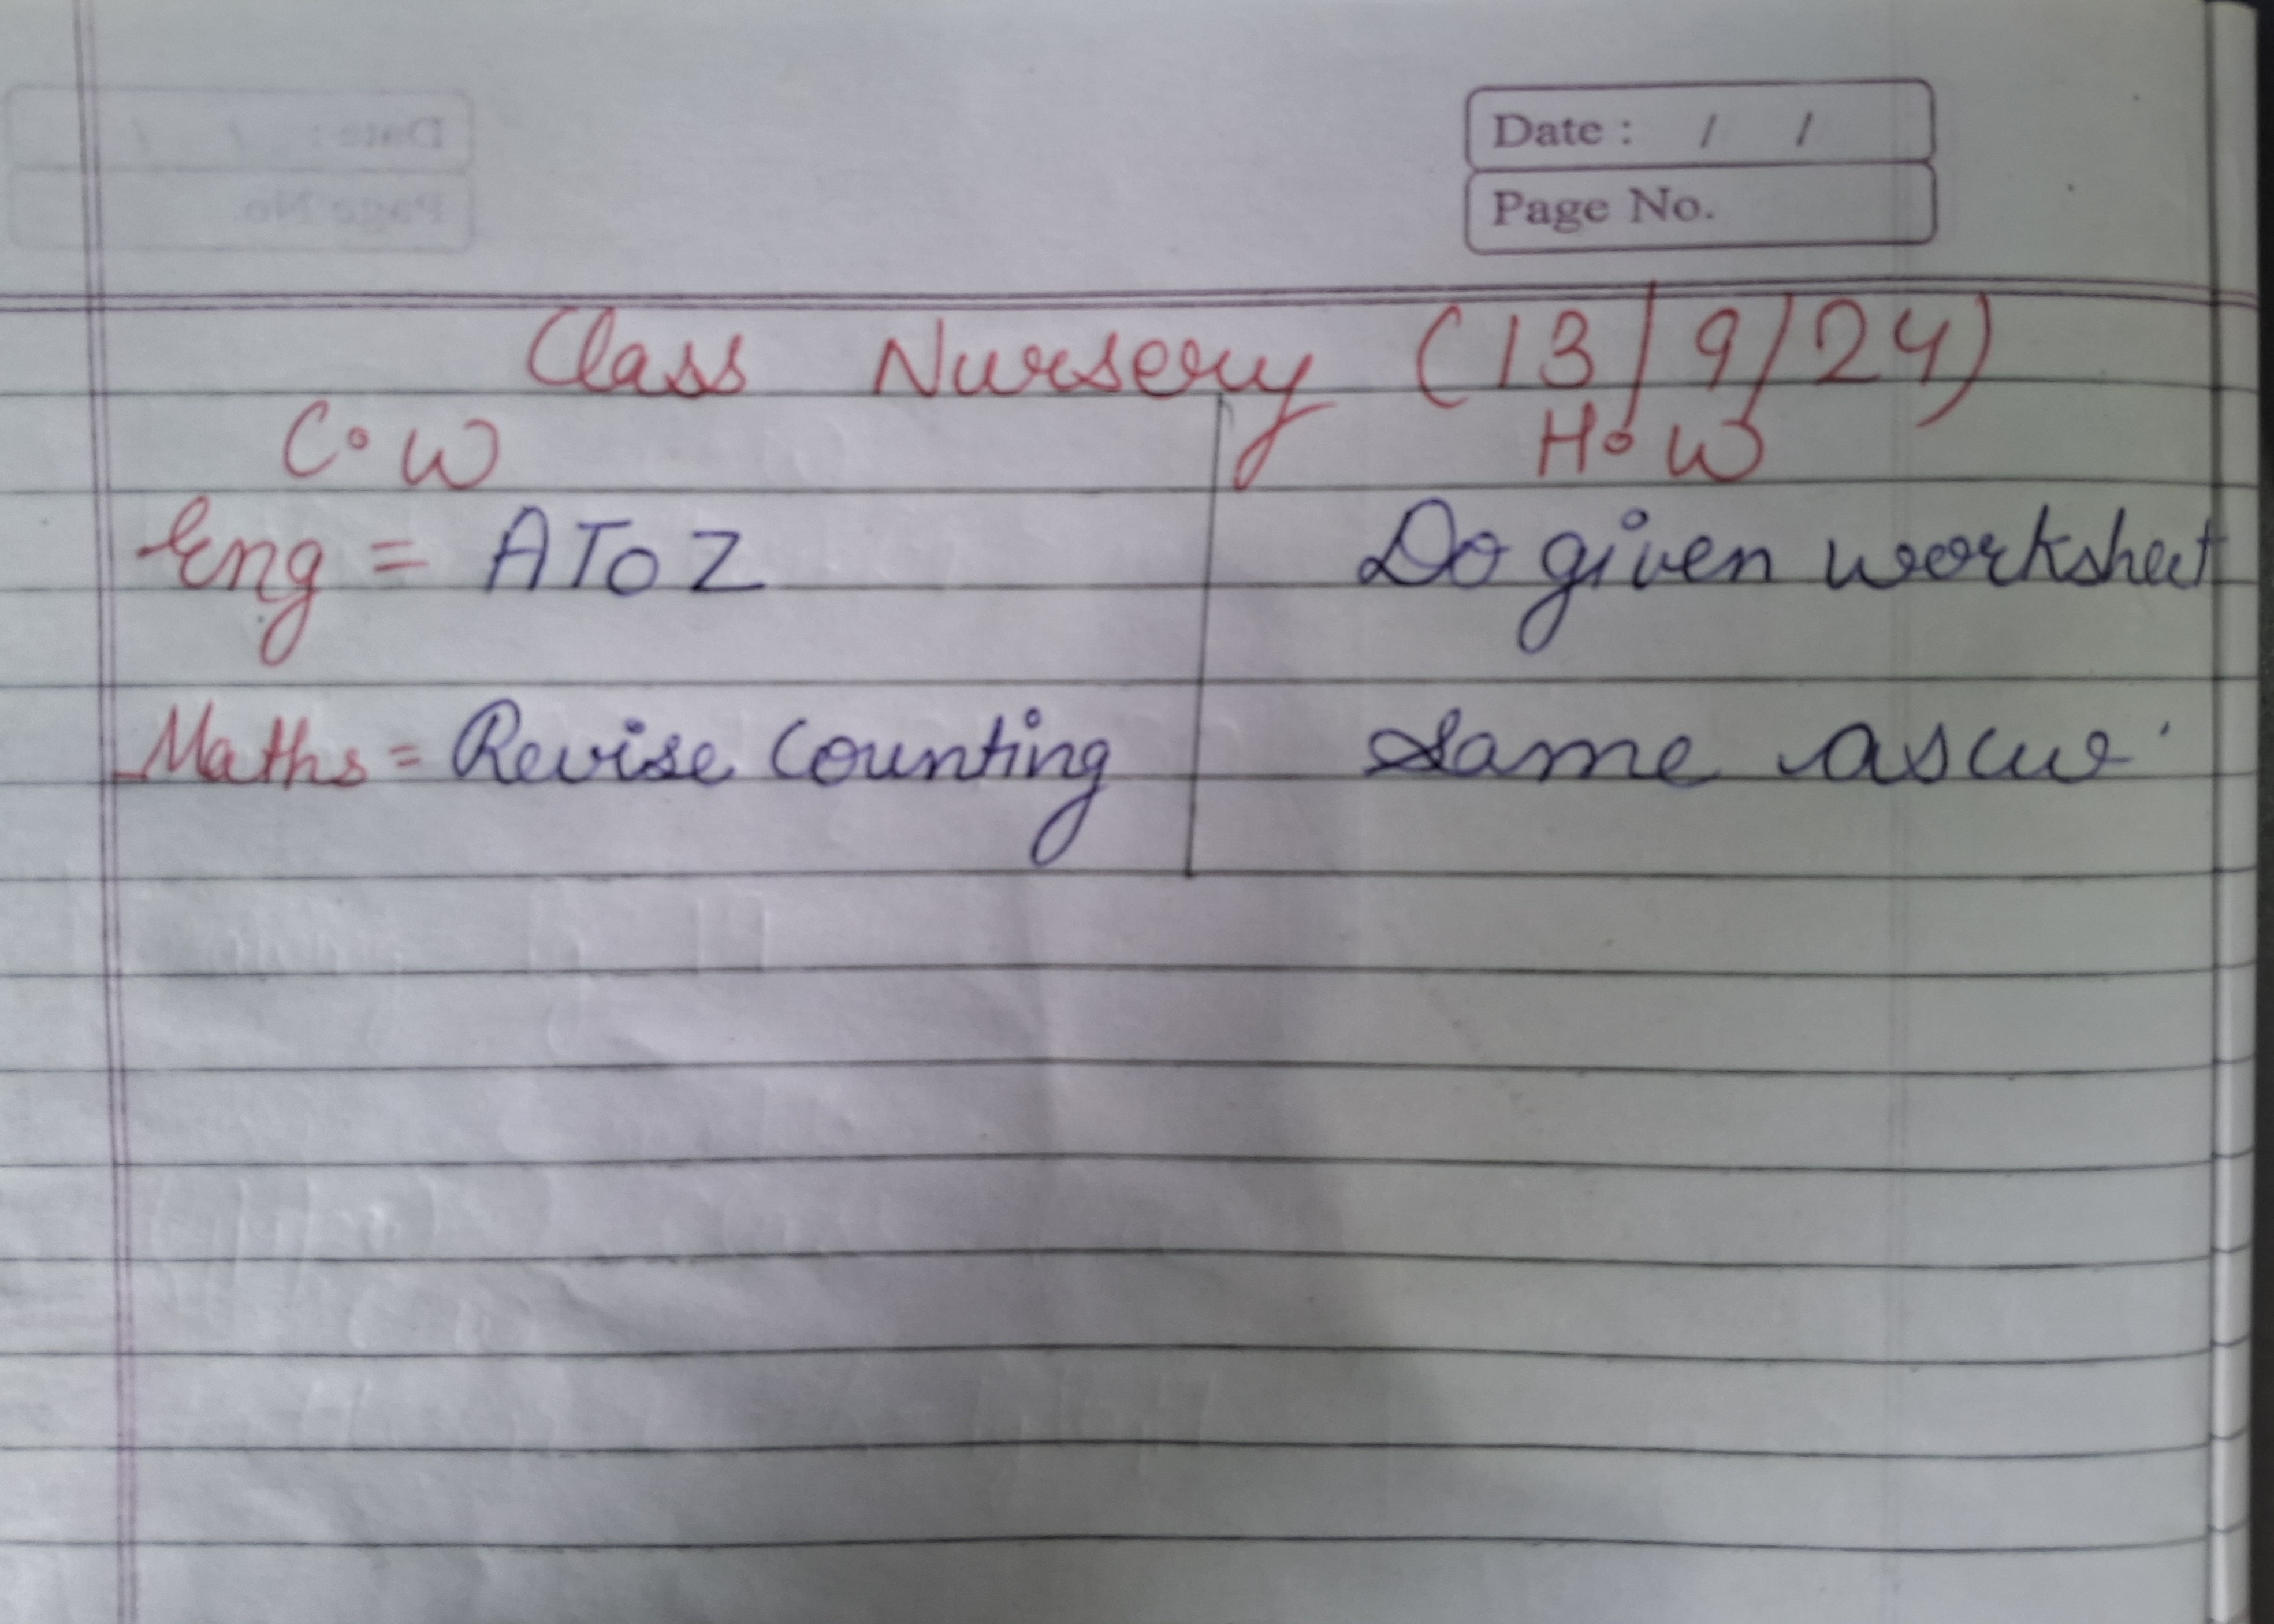 Date : / /
Page No.
Class Nursery (13/9/24)
C.W H.W
Eng = A To Z Do given worksheet
Maths = Revise Counting Same as cw.